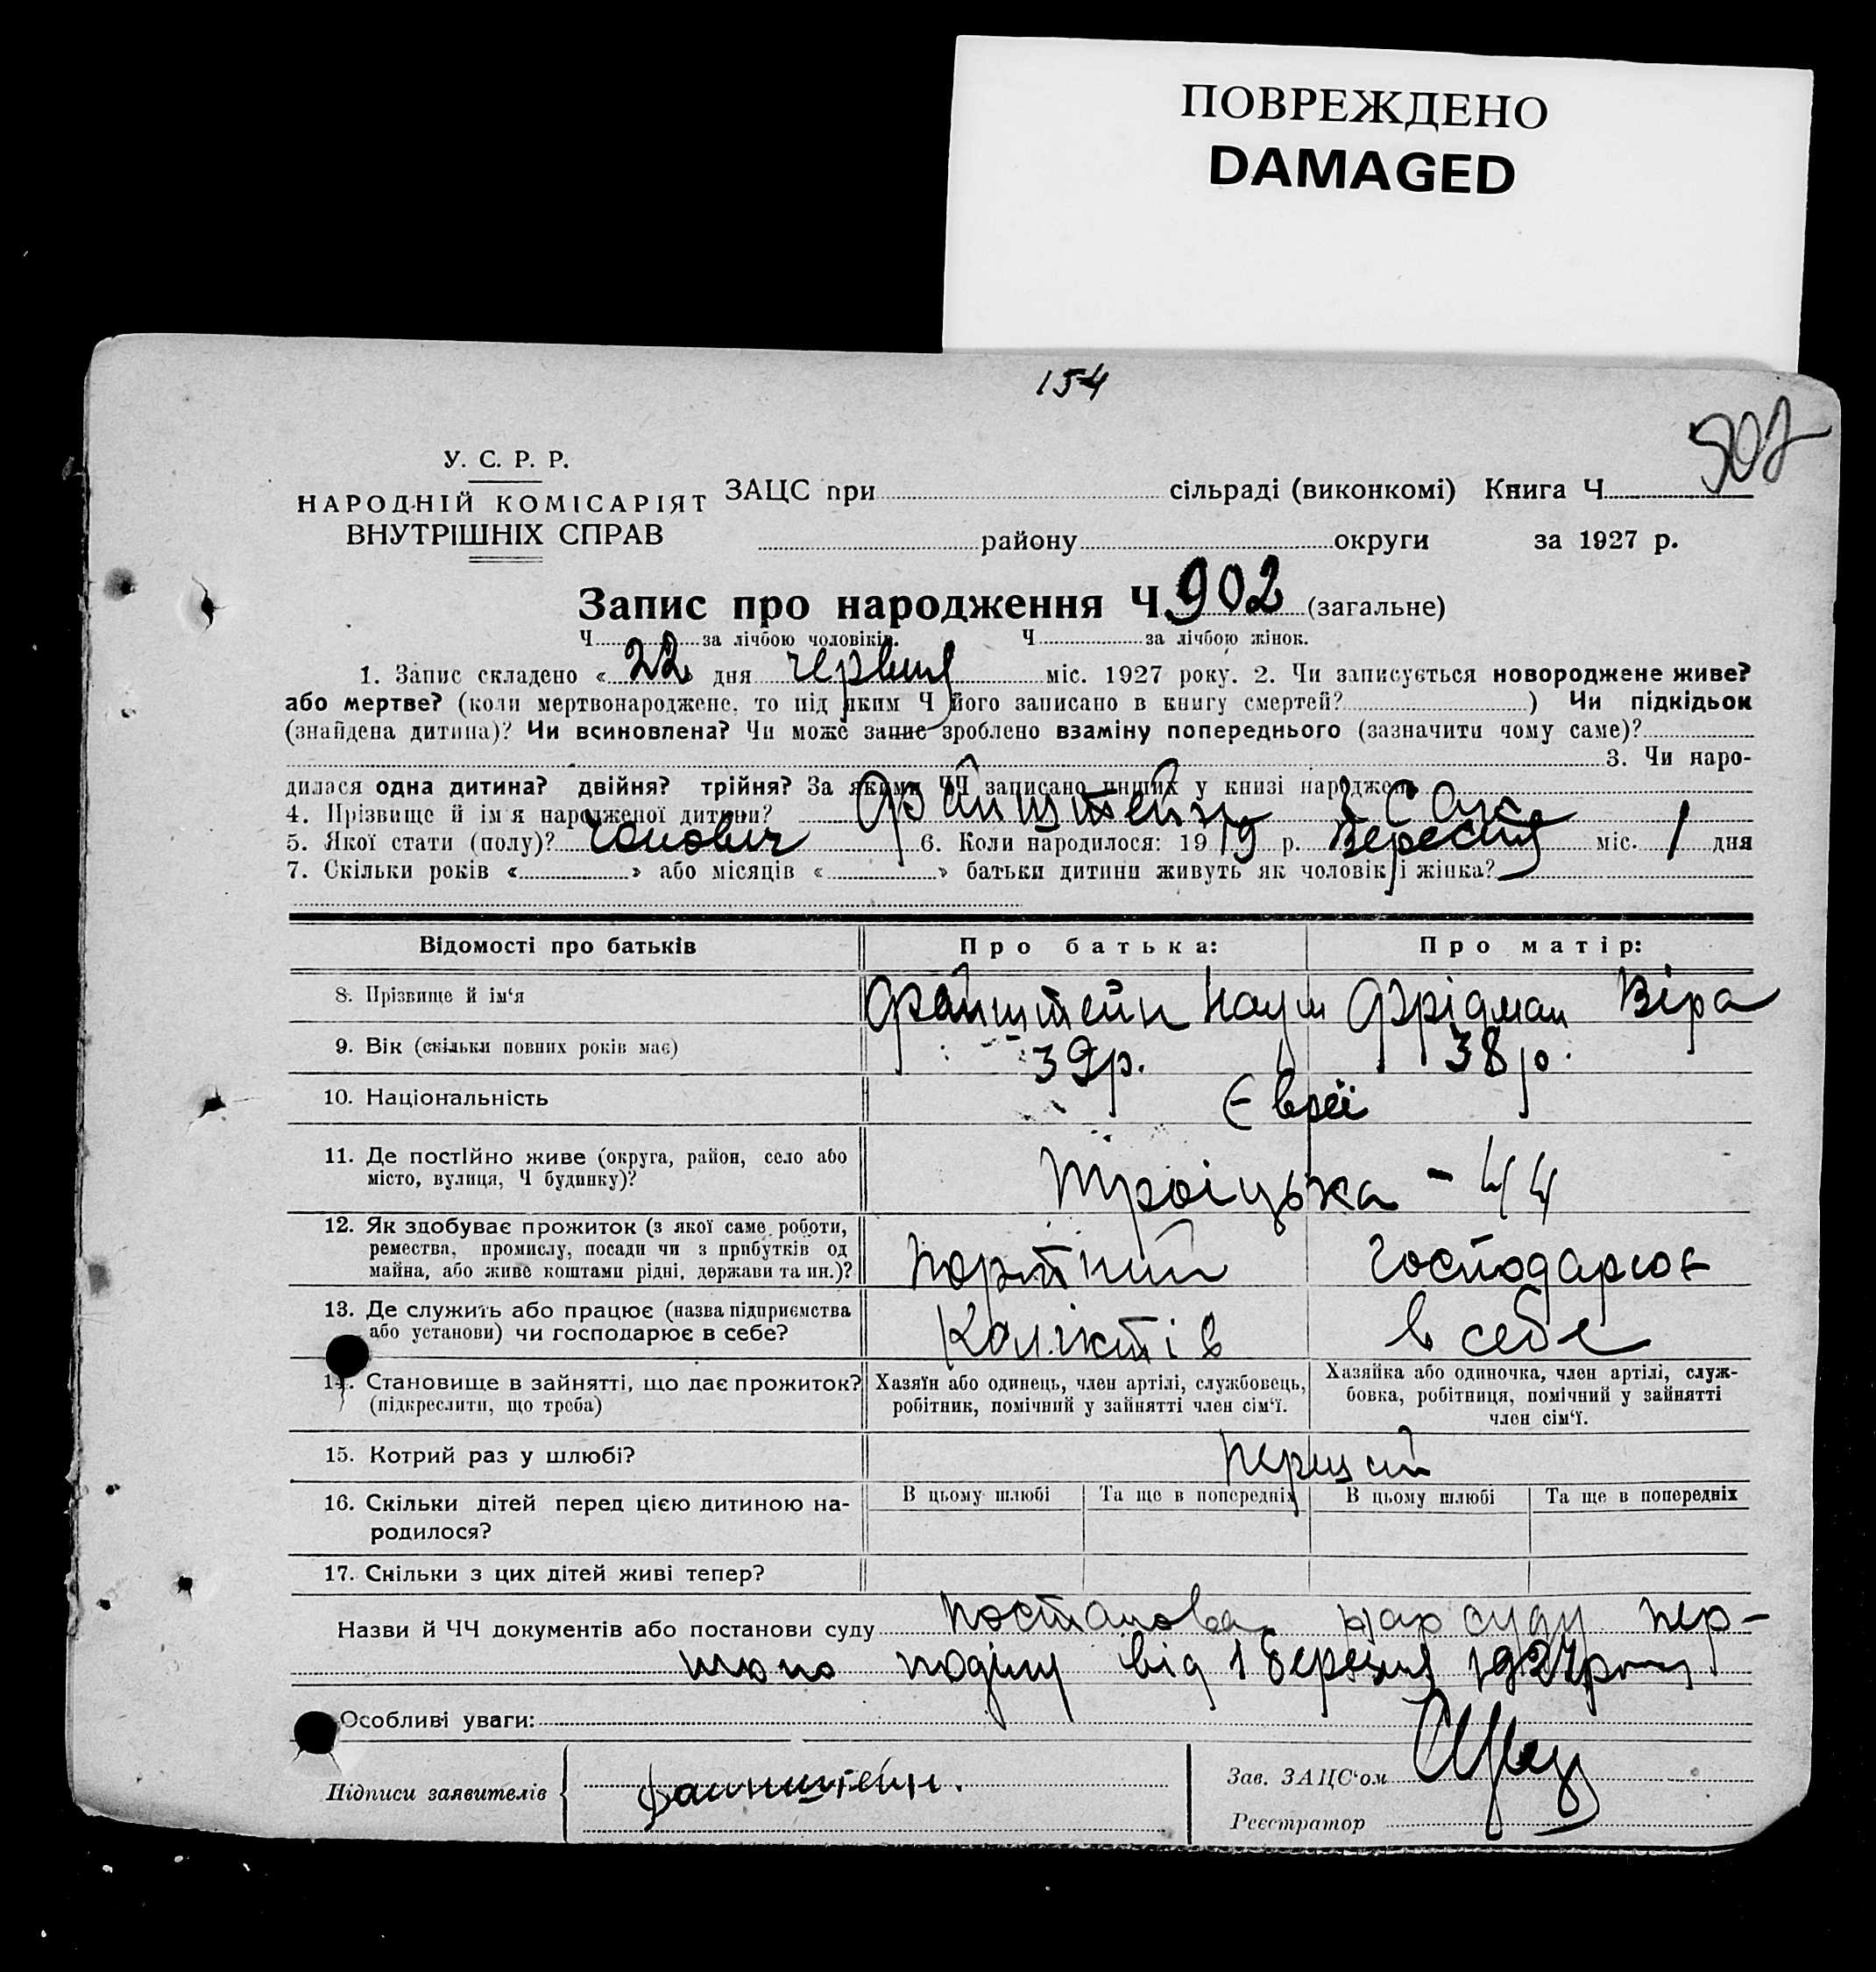 ПОВРЕЖДЕНО
DAMAGED
154
902
У. С. Р. Р.
НАРОДНІЙ КОМІСАРІЯТ
ВНУТРІШНІХ СПРАВ
ЗАЦС при сільраді (виконкомі) Книга Ч.
району округи за 1927 р.
Запис про народження Ч 902 (загальне)
Ч за лічбою чоловіків. Ч за лічбою жінок.
1. Запис складено « 22 » дня червня міс. 1927 року. 2. Чи записується новороджене живе?
або мертве? (коли мертвонароджене, то під яким Ч його записано в книгу смертей? ) Чи підкідьок
(знайдена дитина)? Чи всиновлена? Чи може запис зроблено взаміну попереднього (зазначити чому саме)?
3. Чи наро-
дилася одна дитина? двійня? трійня? За якими ЧЧ записано инших у книзі народжен.
4. Прізвище й ім'я народженої дитини? Файнштейн Ісак
5. Якої стати (полу)? чоловіч 6. Коли народилося: 19 19 р. Вересня міс. 1 дня
7. Скільки років « » або місяців « » батьки дитини живуть як чоловік і жінка?
Відомості про батьків Про батька: Про матір:
8. Прізвище й ім'я Файнштейн Наум Фрідман Віра
9. Вік (скільки повних років має) 39р. 38р.
10. Національність Євреї
11. Де постійно живе (округа, район, село або
місто, вулиця, Ч будинку)? Троіцька - 44
12. Як здобуває прожиток (з якої саме роботи,
ремества, промислу, посади чи з прибутків од
майна, або живе коштами рідні, держави та ин.)? Портний Господарює
13. Де служить або працює (назва підприємства
або установи) чи господарює в себе? Колектів в себе
14. Становище в зайнятті, що дає прожиток?
(підкреслити, що треба)
Хазяїн або одинець, член артілі, службовець,
робітник, помічний у зайнятті член сім'ї.
Хазяйка або одиночка, член артілі, служ-
бовка, робітниця, помічний у зайнятті
член сім'ї.
15. Котрий раз у шлюбі? перший
16. Скільки дітей перед цією дитиною на-
родилося?
В цьому шлюбі Та ще в попередніх В цьому шлюбі Та ще в попередніх
17. Скільки з цих дітей живі тепер?
Назви й ЧЧ документів або постанови суду Постанова нар суду пер-
шого поділу від 1 березня 1927 року
Особливі уваги:
Підписи заявителів Файнштейн.
Зав. ЗАЦС'ом
Реєстратор